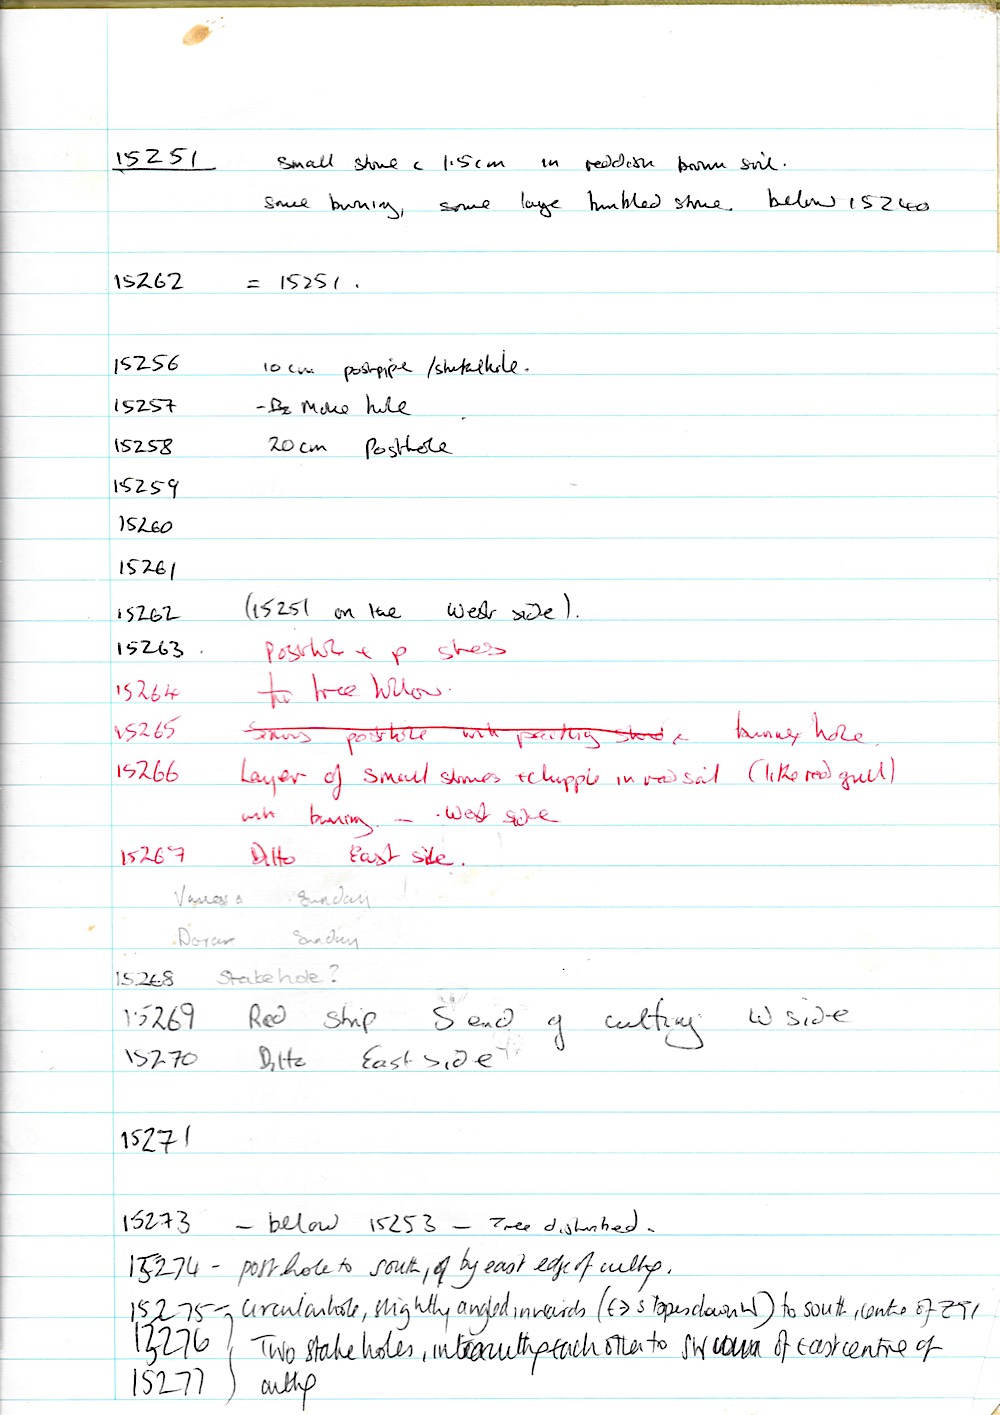 15251 Small stone < 1.5cm in reddish brown soil.
some burning, some large tumbled stone. below 15240
15262 = 15251.
15256 10cm postpipe / stakehole.
15257 hole
15258 20cm Posthole
15259
15260
15261
15262 (15251 on the West side).
15263. Posthole + p
15264 tree hollow.
15265 posthole with packing hole.
15266 Layer of small stones in red soil (like red gull)
with burning – West side
15267 Ditto East side.
Vanessa Sunday
Sunday
15268 Stakehole?
15269 Red strip S end of cutting W side
15270 Ditto East side
15271
15273 – below 15253 – Tree disturbed.
15274 – posthole to south, by east edge of cutting.
15275 – circular hole, slightly angled inwards (E → slopes down W) to south, centre of
15276 Two stakeholes, intercutting each other to SW of east centre of
15277 cutting